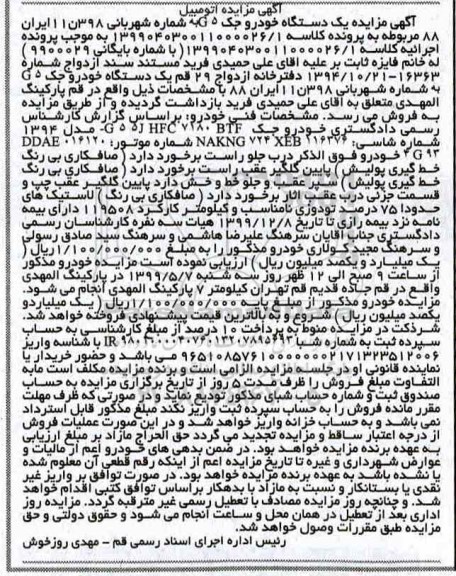 آگهی مزایده اتومبیل
آگهی مزایده یک دستگاه خودرو جک G۵ به شماره شهربانی ۳۹۸ن۱۱ ایران
۸۸ مربوطه به پرونده کلاسه ۱۳۹۹۰۴۰۳۰۰۱۱۰۰۰۰۲۶/۱ به موجب پرونده
اجرائیه کلاسه ۱۳۹۹۰۴۰۳۰۰۱۱۰۰۰۰۲۶/۱ (با شماره بایگانی ۹۹۰۰۰۲۹ )
له خانم فایزه ثابت بر علیه اقای علی حمیدی فرید مستند سند ازدواج شماره
۱۶۳۶۳-۱۳۹۴/۱۰/۲۱ دفترخانه ازدواج ۲۹ قم یک دستگاه خودرو جک G ۵
به شماره شهربانی ۳۹۸ن۱۱ ایران ۸۸ با مشخصات ذیل واقع در قم پارکینگ
المهدی متعلق به اقای علی حمیدی فرید بازداشت گردیده و از طریق مزایده
به فروش می رسد. مشخصات فنی خودرو: براساس گزارش کارشناس
رسمی دادگستری خودرو جک J۵ HFC ۷۱۸۰ BTF -G۵ مدل ۱۳۹۴
شماره شاسی: NAKNG ۷۲۴ XEB ۱۱۶۳۷۶ شماره موتور: DDAE ۰۱۶۱۲۰
۴G ۹۳ خودرو فوق الذکر درب جلو راست برخورد دارد ( صافکاری بی رنگ
خط گیری پولیش ) پایین گلگیر عقب راست برخورد دارد ( صافکاری بی رنگ
خط گیری پولیش ) سپر عقب و جلو خط و خش دارد پایین گلگیر عقب چپ و
قسمت جزئی درب عقب اثار برخورد دارد ( صافکاری بی رنگ) لاستیک های
حدودا ۷۵ درصد تودوزی نامناسب و کیلومتر کارکرد ۱۱۹۵۰۸ دارای بیمه
نامه نزد بیمه رازی تا تاریخ ۱۳۹۹/۱۲/۸ هیات سه نفره کارشناسان رسمی
دادگستری جناب آقایان سرهنگ علیرضا هاشمی و سرهنگ سید صادق رسولی
و سرهنگ مجید کولاری خودرو مذکور را به مبلغ ۱/۱۰۰/۰۰۰/۰۰۰ریال (
یک میلیارد و یکصد میلیون ریال ) ارزیابی نموده است مزایده خودرو مذکور
از ساعت ۹ صبح الی ۱۲ ظهر روز سه شنبه ۱۳۹۹/۵/۷ در پارکینگ المهدی
واقع در قم جاده قدیم قم تهران کیلومتر ۷ پارکینگ المهدی انجام می شود.
مزایده خودرو مذکور از مبلغ پایه ۱/۱۰۰/۰۰۰/۰۰۰ریال (یک میلیاردو
یکصد میلیون ریال ) شروع و به بالاترین قیمت پیشنهادی فروخته خواهد شد.
شرکت در مزایده منوط به پرداخت ۱۰ درصد از مبلغ کارشناسی به حساب
سپرده ثبت به شماره شبا با شناسه واریز
می باشد و حضور خریدار یا
نماینده قانونی او در جلسه مزایده الزامی است و برنده مزایده مکلف است مابه
التفاوت مبلغ فروش را ظرف مدت ۵ روز از تاریخ برگزاری مزایده به حساب
صندوق ثبت و شماره حساب شبای مذکور تودیع نماید و در صورتی که ظرف مهلت
مقرر مانده فروش را به حساب سپرده ثبت واریز نکند مبلغ مذکور قابل استرداد
نمی باشد و به حساب خزانه واریز خواهد شد و در این صورت عملیات فروش
از درجه اعتبار ساقط و مزایده تجدید می گردد حق الحراج مازاد بر مبلغ ارزیابی
به عهده برنده مزایده خواهد بود. در ضمن بدهی های خودرو اعم از مالیات و
عوارض شهرداری و غیره تا تاریخ مزایده اعم از اینکه رقم قطعی آن معلوم شده
یا نشده باشد به عهده برنده مزایده خواهد بود. در صورت توافق بر واریز غیر
نقدی با بستانکار و نسبت به مازاد با بدهکار براساس توافق کتبی اقدام خواهد
شد. و چنانچه روز مزایده مصادف با تعطیل رسمی غیر مترقبه گردد. مزایده روز
اداری بعد از تعطیل در همان محل و ساعت انجام می شود و حقوق دولتی و حق
مزایده طبق مقررات وصول خواهد شد.
رئیس اداره اجرای اسناد رسمی قم - مهدی روزخوش